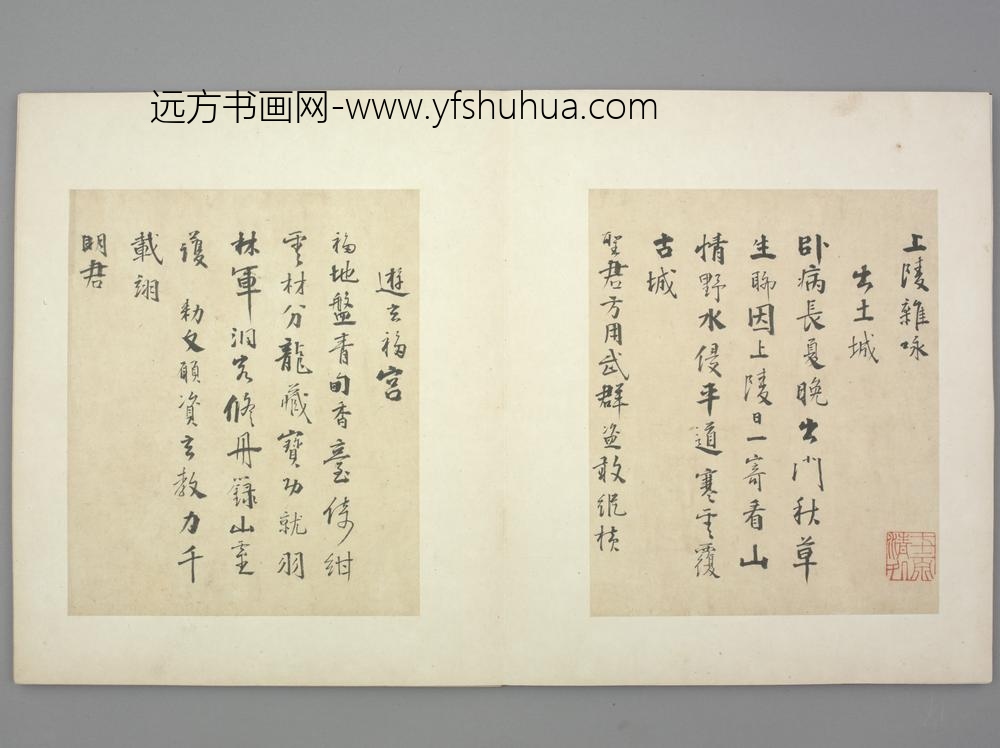 远方书画网-www.yfshuhua.com
上陵雜咏
出土城
卧病長夏晚出門秋草
生聊因上陵日一寄看山
情野水侵平道寒雲覆
古城
聖君方用武群盗敢縱横
遊玄福宮
福地盤青甸香臺倚紺
雲材分龍藏寶功就羽
林軍洞客修丹籙山靈
護勑文願資玄教力千
載翊
明君